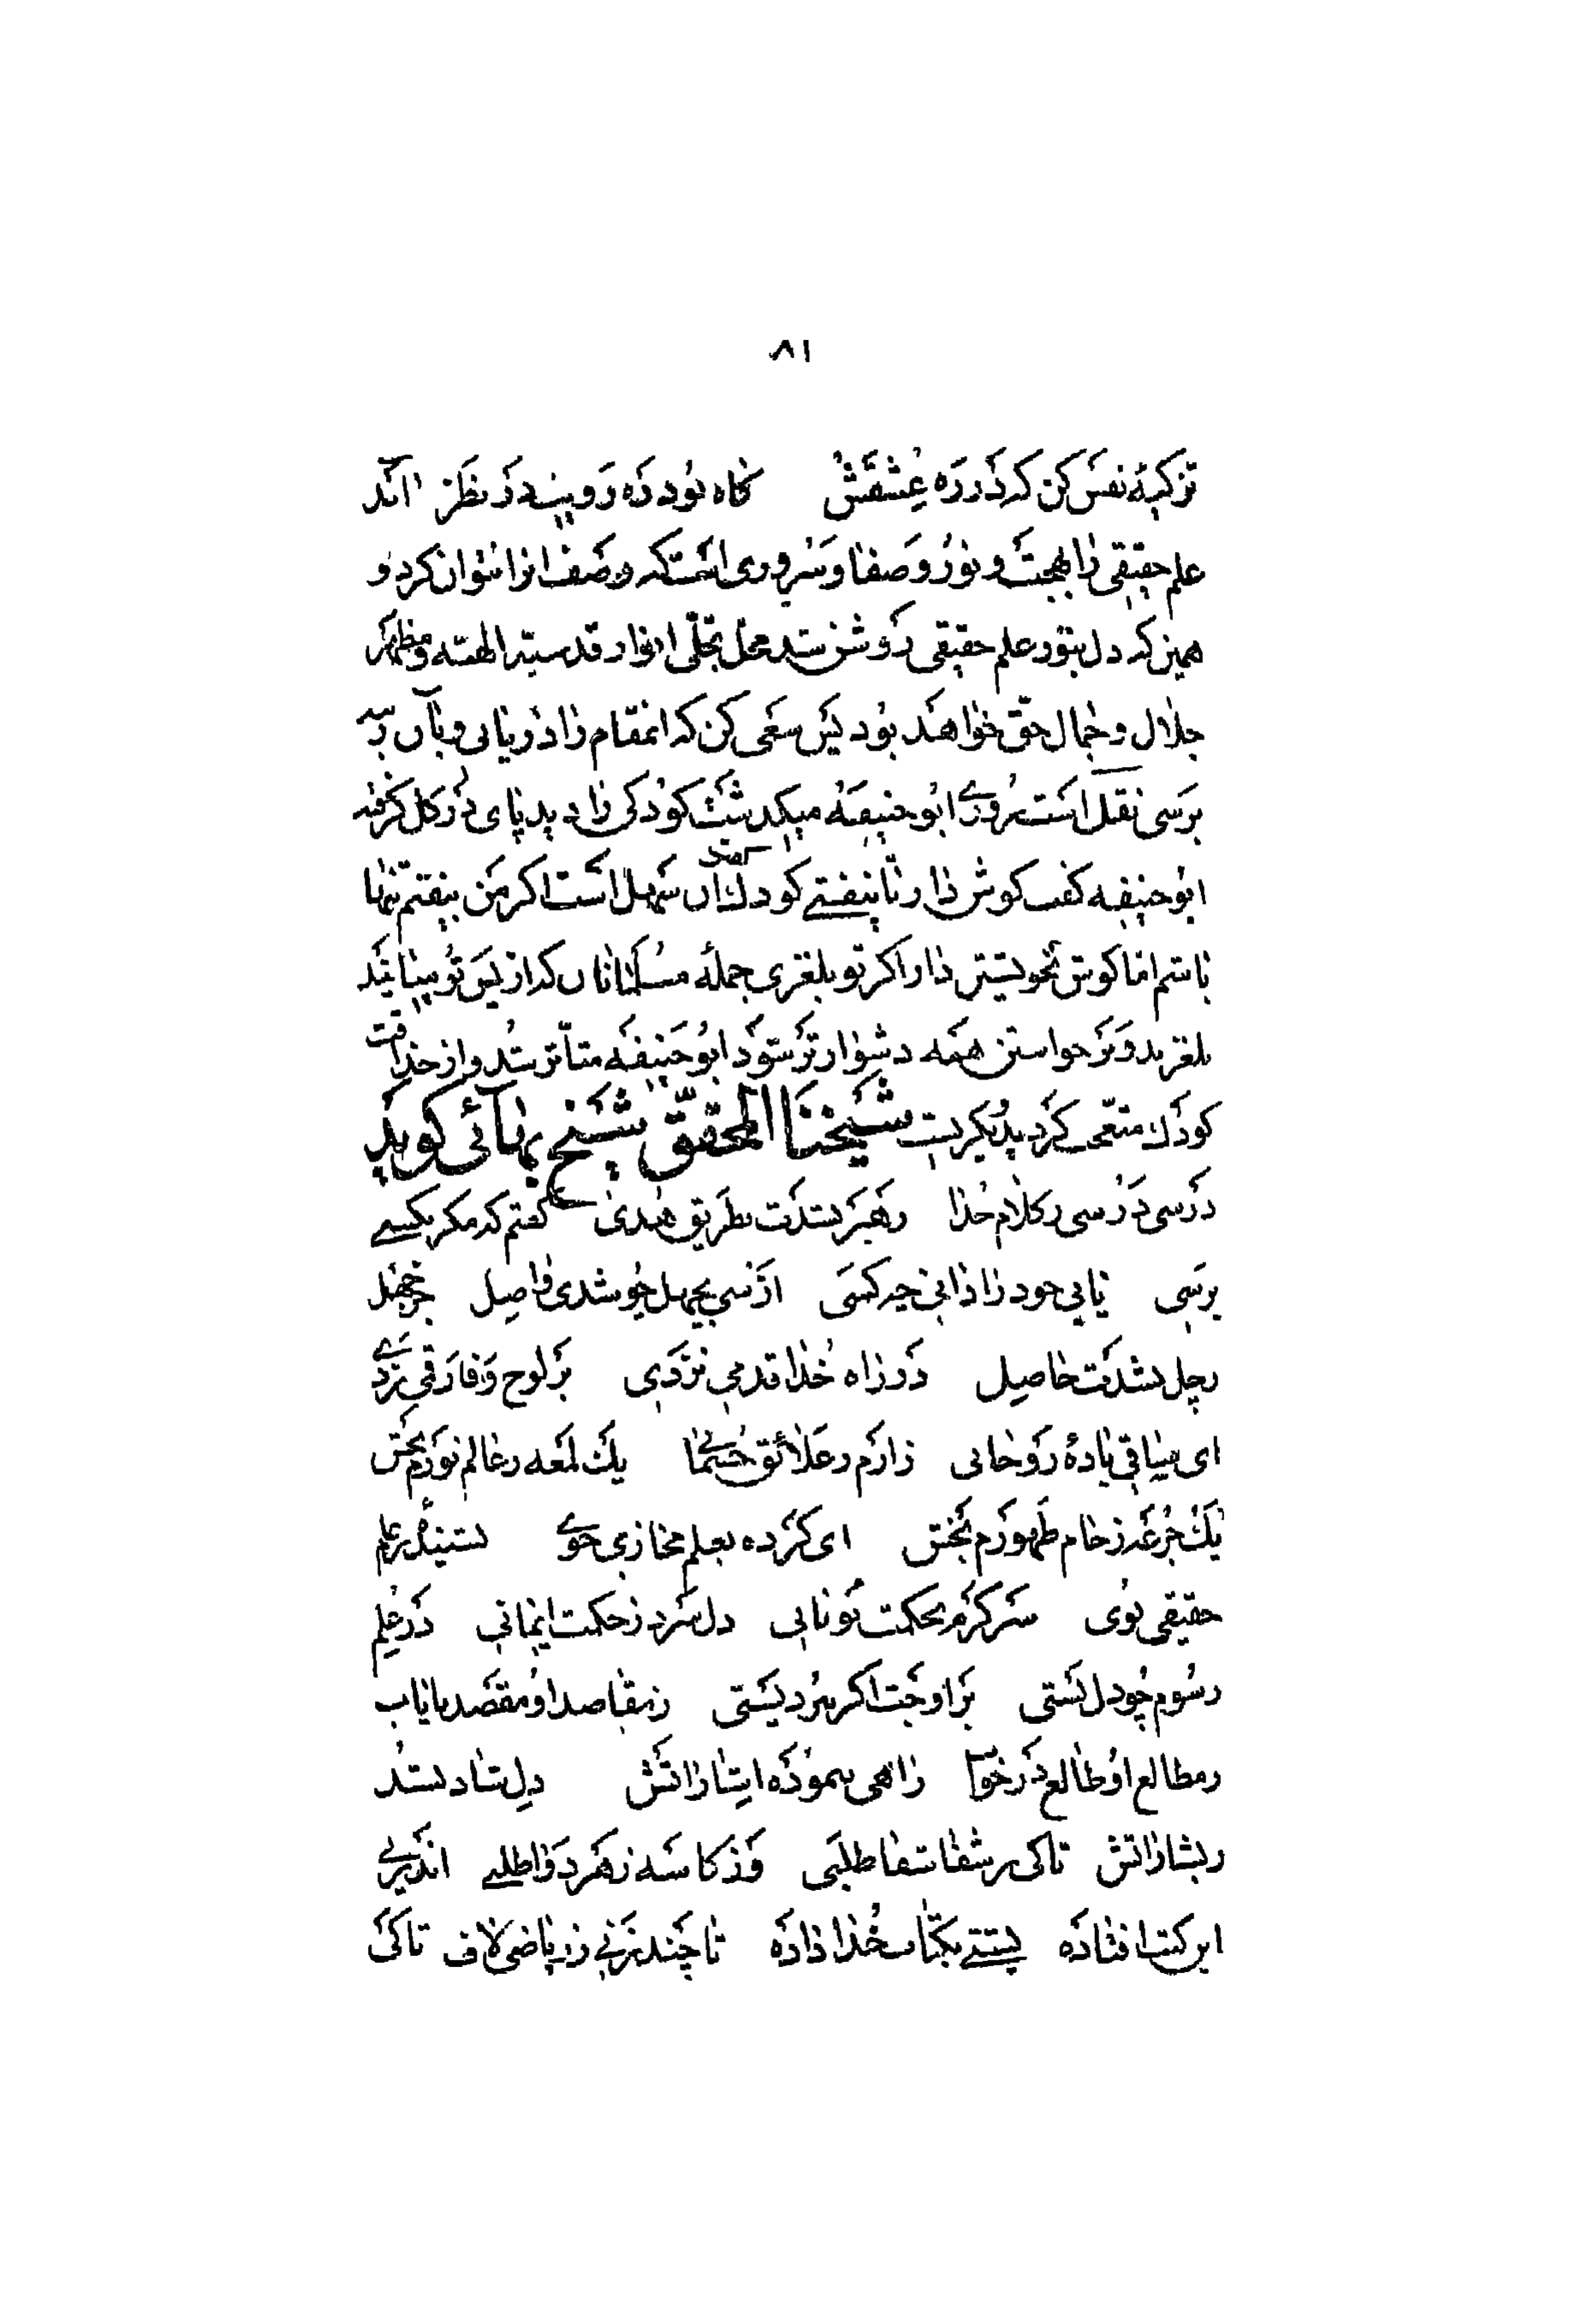 ٨١
تزکیهٔ نفس کن که در ره عشقش کاه بود ره رو پند در نظر آند
علم حقیقی را بهجت و نور و صفا و سروری است که وصف انرا نتوان کرد و
همین که دل بنور علم حقیقی روشن شد محل تجلّی انوار قدسیّه الهیّه و مظهر
جلال و جمال حقّ خواهد بود پس سعی کن که انمقام را دریابی و بآن رسی
برسی نقل است روزی ابو حنیفه میگدشت کودکی را دید پای در گل گرفته
ابو حنیفه گفت گوش دار تا نیفتی کودک گفت آن سهل است اگر من بیفتم تنها
باشم اما گوش بخویشتن دار اگر تو بلغزی جملهٔ مسلمانان که از پس تو میایند
بلغزند و برخواستن همه دشوار تر شود ابو حنیفه متأثر شد و از حذاقت
کودک متعجب کرد بد بگریست شیخنا المحقّق شیخ بهائی گوید
درسی درسی ز کلام خدا رهبر نشدت بطریق هدی گفتم که مگر بکسی
برسی یابی خود را دانی چه کسی از سی بچهل چو شدی واصل جز جهل
ز چل نشدت حاصل در راه خدا قدمی نزدی بر لوح وفا رقمی نزدی
ای ساقی بادهٔ روحانی زارم ز علائق جسمانی یک لمعه ز عالم نورم بخش
یک جرعه ز جام طهورم بخش ای کرده بعلم مجازی خوی نشنیده ز علم
حقیقی بوی سرگرم بحکمت یونانی دل سرد ز حکمت ایمانی در علم
رسوم چو دل بستی بر اوجت اگر ببرد پستی ز مقاصد او مقصد نایاب
ز مطالع او طالع در خواب راهی ننموده اشاراتش دل شاد نشد
ز بشاراتش تا کی ز شفا شفا طلبی وز کاسه زهر دوا طلبی اندر پی
این کتب افتاده پشتی بکتاب خدا داده تا چند زنی ز ریاضی لاف تا کی